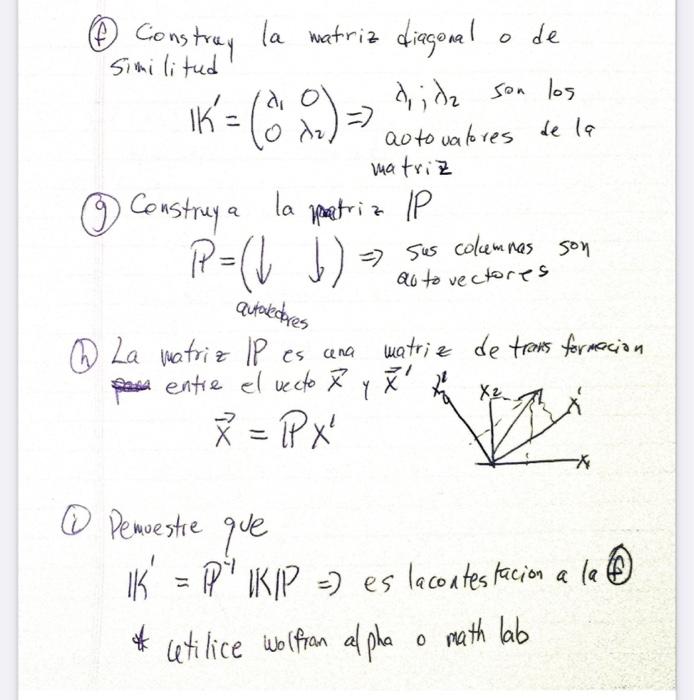 (f) Construy la matriz diagonal o de
similitud
IK' = (λ1 0
0 λ2) => λ1; λ2 son los
autovalores de la
matriz
(g) Construya la matriz IP
IP = (↓ ↓) => sus columnas son
autovectores
autovectores
(h) La matriz IP es una matriz de transformacion
entre el vecto x⃗ y x⃗'
x⃗ = IP x'
X2 X' X
(i) Demuestre que
IK' = IP⁻¹ IK IP => es la contestacion a la (f)
* utilice wolfran alpha o math lab